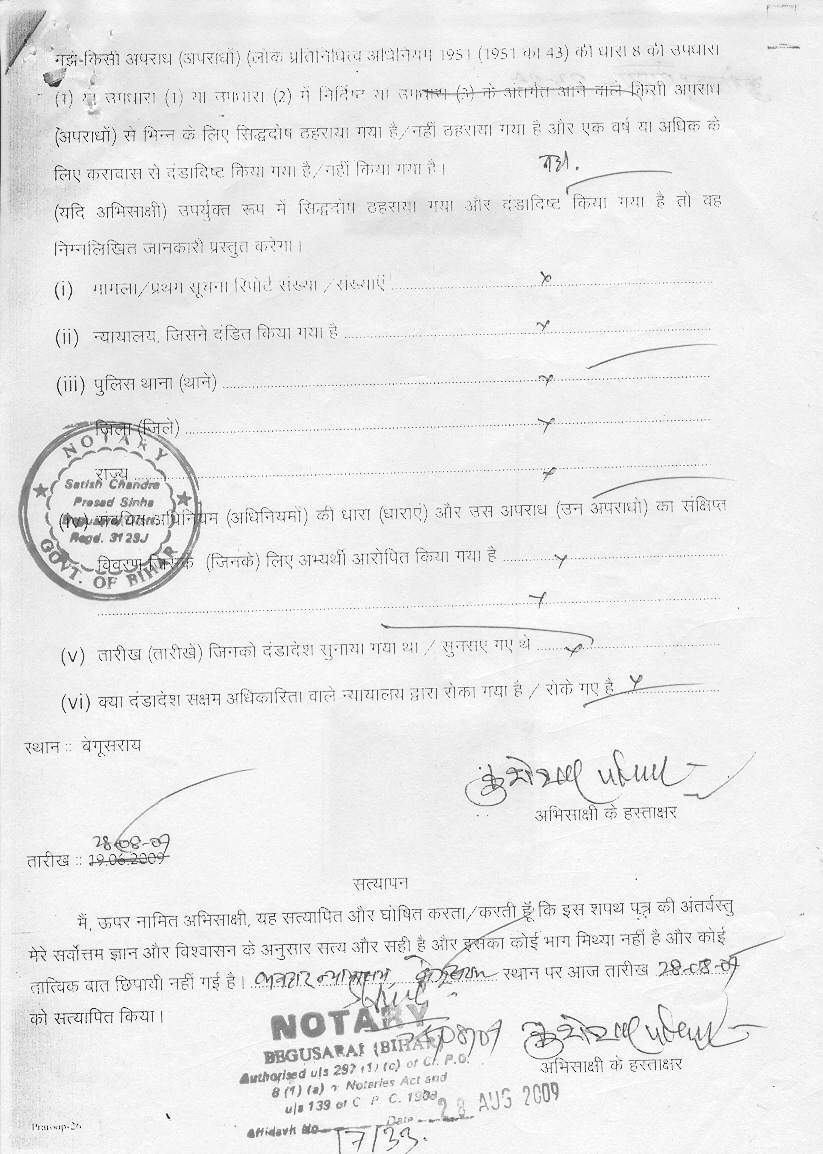 मुझे किसी अपराध (अपराधों) (लोक प्रतिनिधित्व अधिनियम 1951 (1951 का 43) की धारा 8 की उपधारा
(1) या उपधारा (1) या उपधारा (2) में निर्दिष्ट या उपधारा (3) के अंतर्गत आने वाले किसी अपराध
(अपराधों) से भिन्न के लिए सिद्धदोष ठहराया गया है/नहीं ठहराया गया है और एक वर्ष या अधिक के
लिए करावास से दंडादिष्ट किया गया है/नहीं किया गया है।
(यदि अभिसाक्षी) उपर्युक्त रूप में सिद्धदोष ठहराया गया और दडादिष्ट किया गया है तो वह
निम्नलिखित जानकारी प्रस्तुत करेगा।
(i) मामला/प्रथम सूचना रिपोर्ट संख्या/संख्याएँ ........ x
(ii) न्यायालय, जिसने दंडित किया गया है ........ x
(iii) पुलिस थाना (थाने) ........ x
जिला (जिले) ........ x
राज्य ........ x
NOTARY
Satish Chandra
Prasad Sinha
Regd. 3123J
GOVT. OF BIHAR
(iv) संबंधित अधिनियम (अधिनियमों) की धारा (धाराएं) और उस अपराध (उन अपराधो) का संक्षिप्त
विवरण जिसके (जिनके) लिए अभ्यर्थी आरोपित किया गया है ........ x
........ x
(v) तारीख (तारीखें) जिनको दंडादेश सुनाया गया था / सुनसए गए थे ........ x
(vi) क्या दंडादेश सक्षम अधिकारिता वाले न्यायालय द्वारा रोका गया है / रोके गए है x
स्थान :: बेगूसराय
अभिसाक्षी के हस्ताक्षर
28-08-09
तारीख :: 19.06.2009
सत्यापन
मैं, ऊपर नामित अभिसाक्षी, यह सत्यापित और घोषित करता/करती हूँ कि इस शपथ पत्र की अंतर्वस्तु
मेरे सर्वोत्तम ज्ञान और विश्वासन के अनुसार सत्य और सही है और इसका कोई भाग मिथ्या नहीं है और कोई
तात्विक बात छिपायी नहीं गई है। स्थान पर आज तारीख 28-08-09
को सत्यापित किया।
NOTARY
BEGUSARAI (BIHAR)
Authorised u/s 297 (1) (c) of Cr. P.C.
8 (1) (a) of Notaries Act and
u/s 139 of C. P. C. 1908
Date 28 AUG 2009
Affidavit No 17/33.
अभिसाक्षी के हस्ताक्षर
Praroop-26